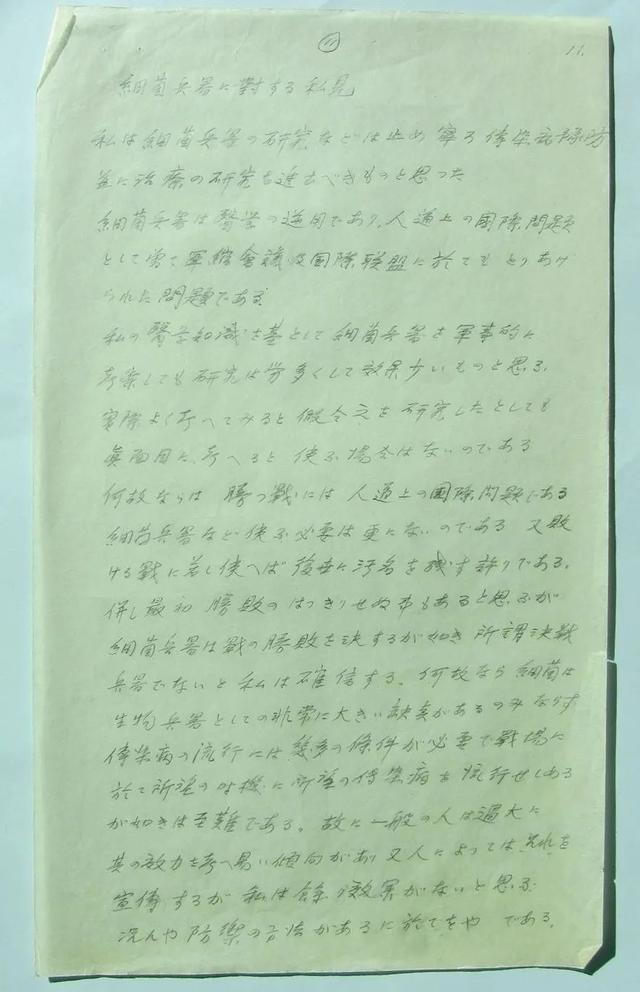 11
11.
細菌兵器に對する私見
私は細菌兵器の研究などは止め寧ろ傳染病豫防
並に治療の研究を進むべきものと思つた
細菌兵器は醫学の逆用であり、人道上の國際問題
として嘗て軍縮會議及國際联盟に於てもとりあげ
られた問題である
私の醫学知識を基として細菌兵器を軍事的に
考察しても研究は労多くして効果少いものと思ふ。
實際よく考へてみると假令之を研究したとしても
眞面目に考へると使ふ場合はないのである
何故ならば勝つ戰には人道上の國際問題である
細菌兵器など使ふ必要は更にないのである又敗
ける戰に若し使へば後世に汚名を残す許りである。
併し最初勝敗のはつきりせぬ事もあると思ふが
細菌兵器は戰の勝敗を決するが如き所謂決戰
兵器でないと私は確信する。何故なら細菌は
生物兵器としての非常に大きい缺点があるのみならず
傳染病の流行には幾多の條件が必要で戰場に
於て所望の時機に所望の傳染病を流行せしめる
が如きは至難である。故に一般の人は過大に
其の效力を考へ易い傾向があり又人によつてはそれを
宣傳するが私は余り效果がないと思ふ
况んや防禦の方法があるに於てをやである。